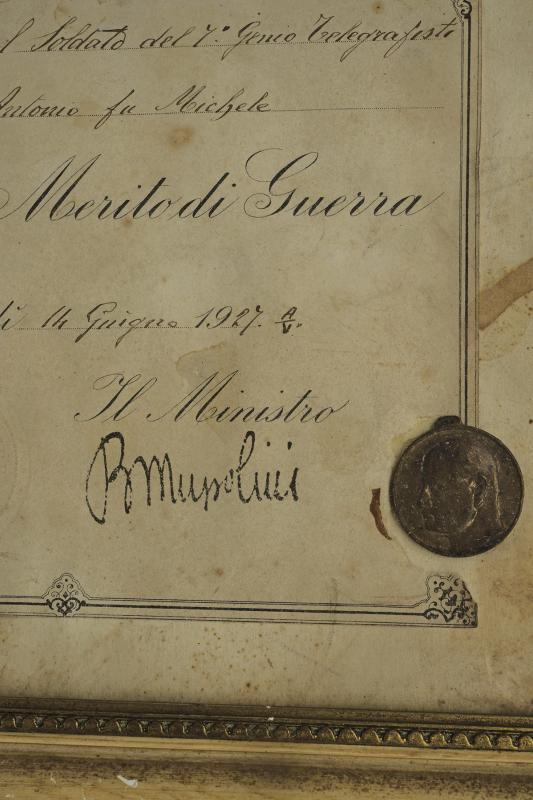 l Soldato del 7° Genio Telegrafisti
Antonio fu Michele
Merito di Guerra
lì 14 Giugno 1927. A/V.
Il Ministro
B Mussolini